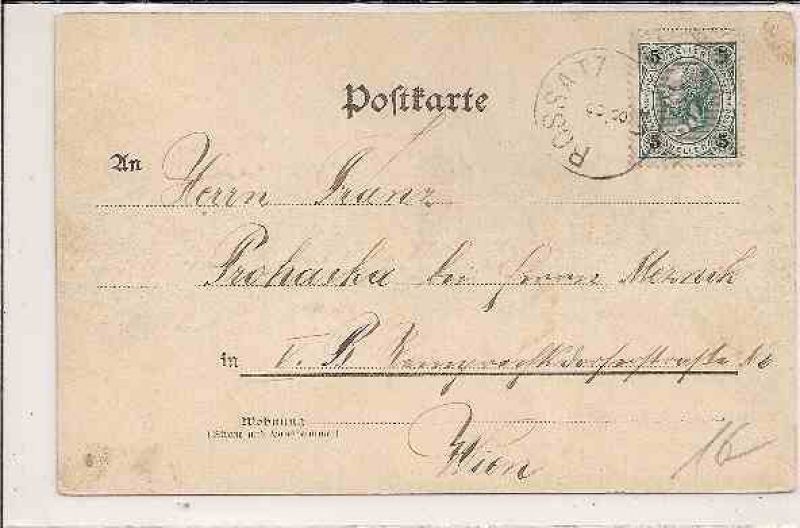 Postkarte
5 HELLER 5
ROSSATZ
5 HELLER 5
An Herrn Franz
Prohaska bei Herrn
in V. B.
Wohnung
(Straße und Hausnummer)
Wien 16